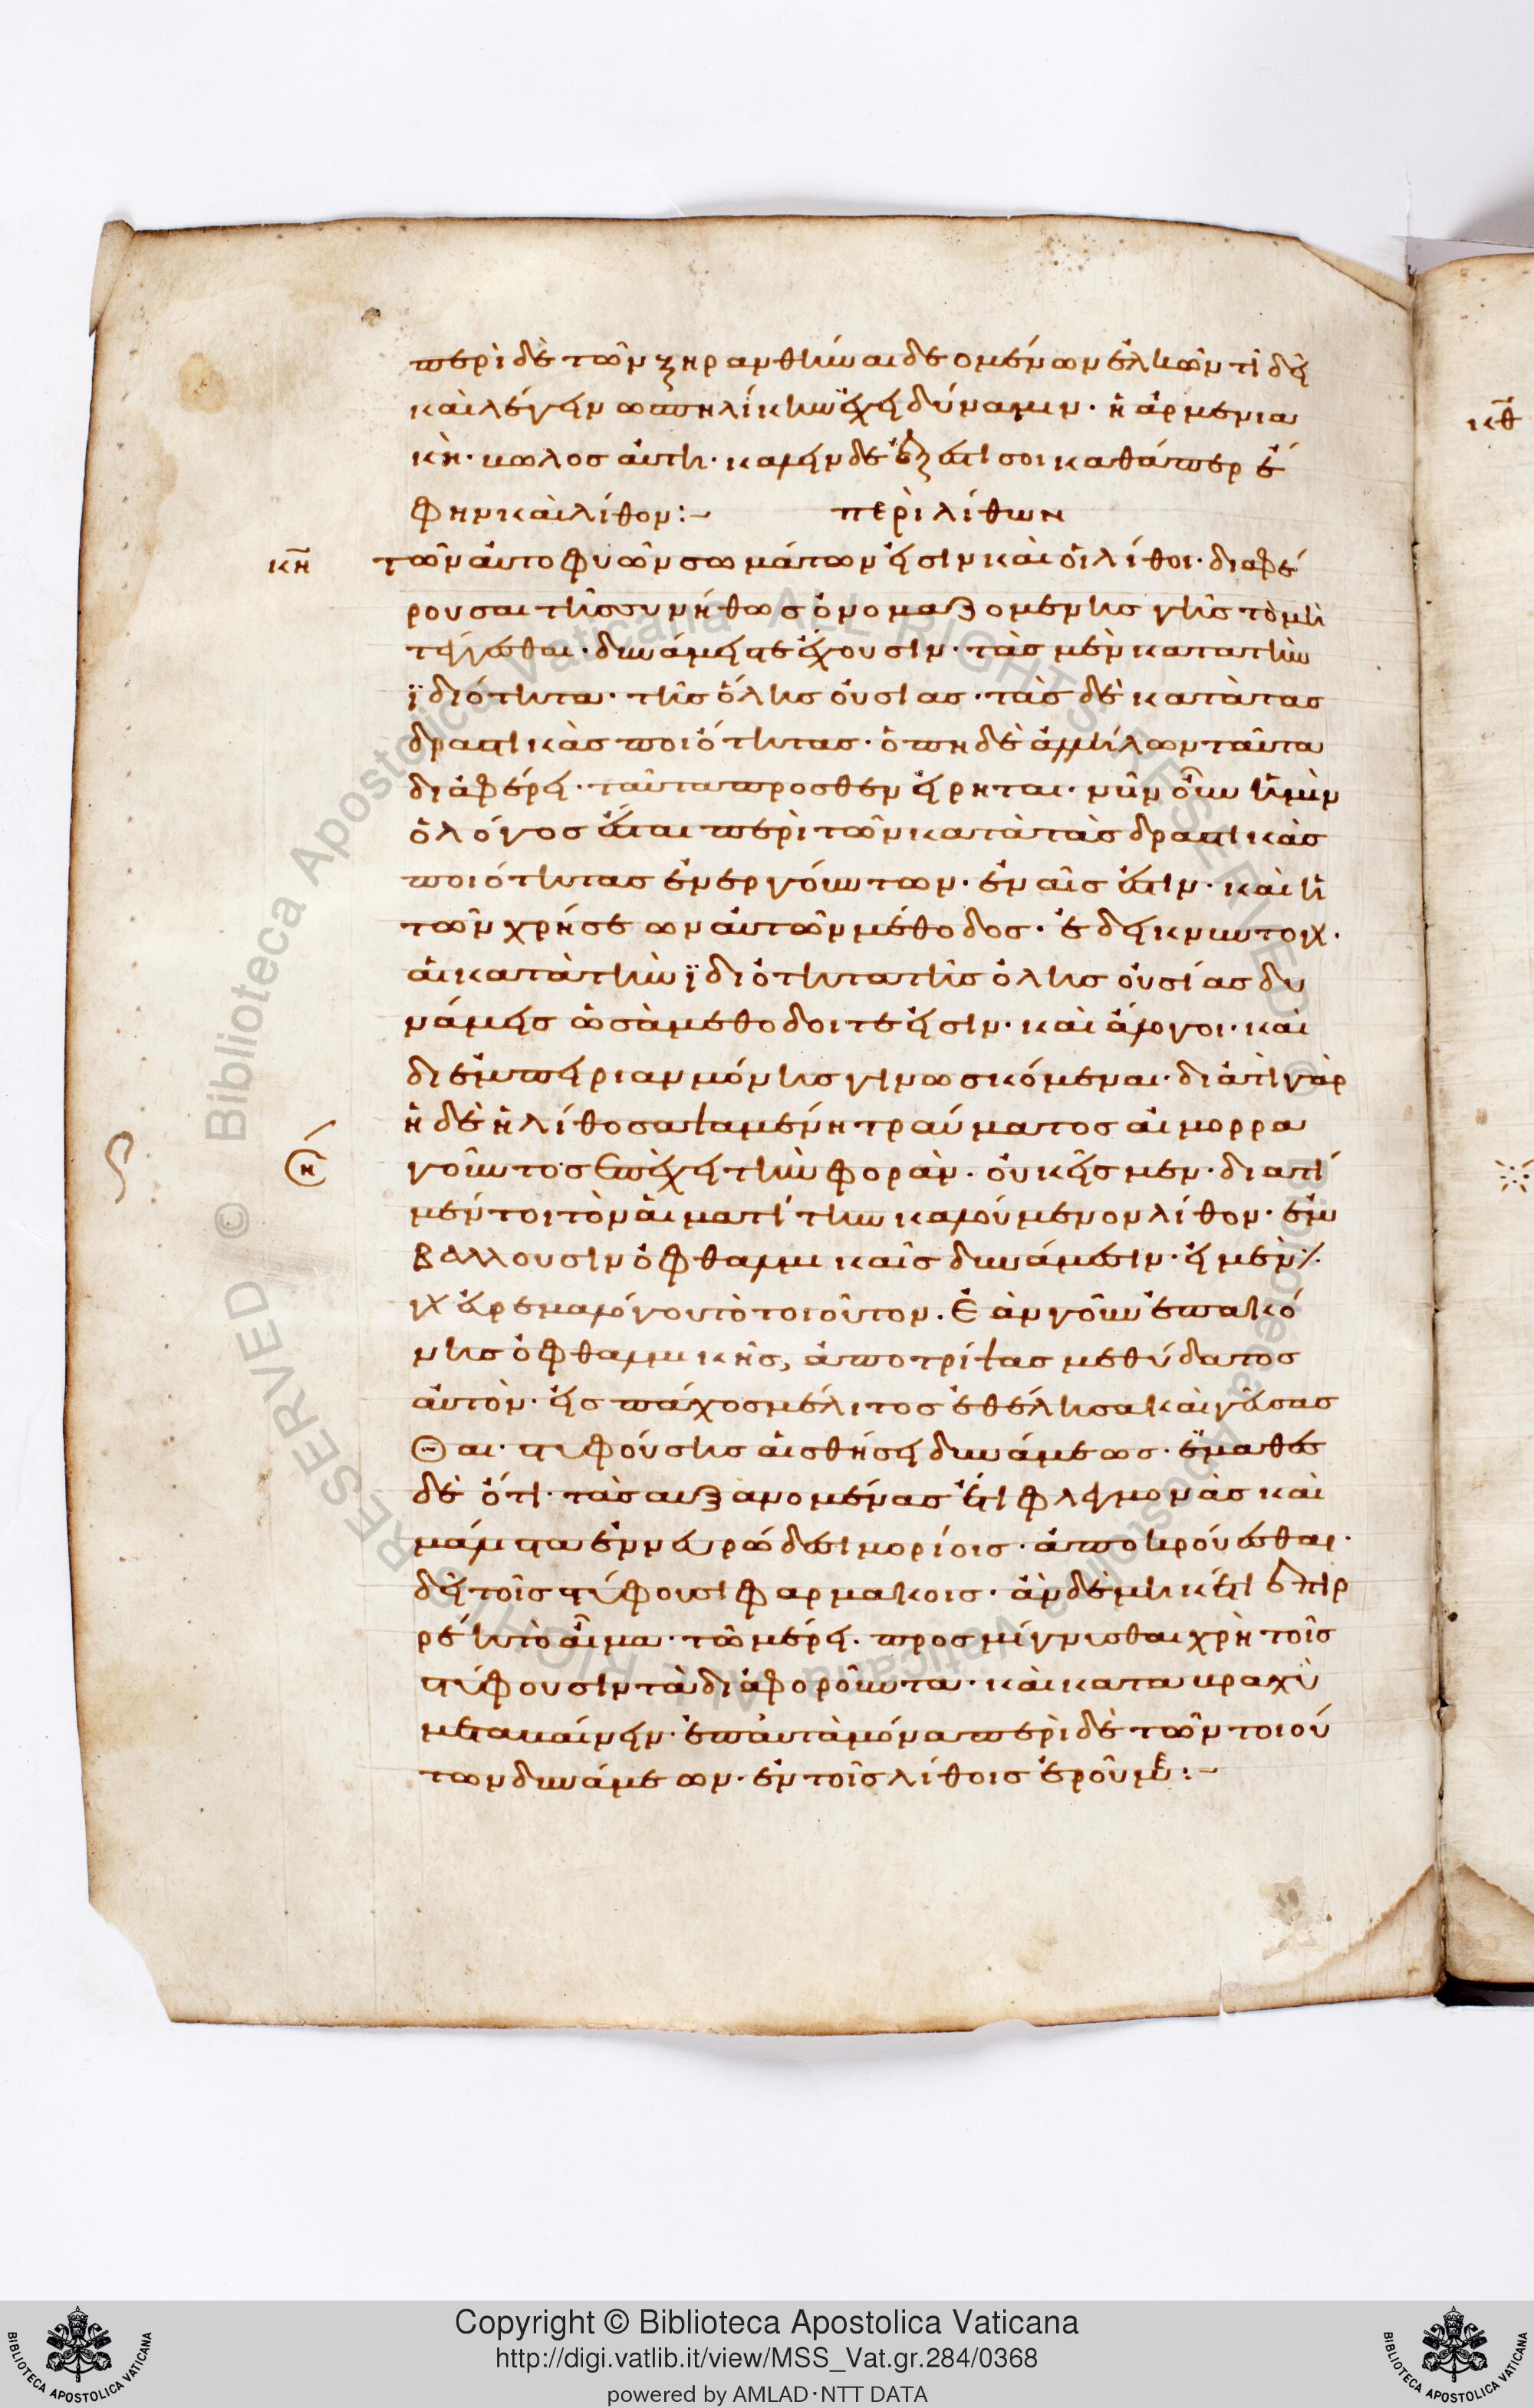 περὶ δὲ τῶν ξηρανθῆναι δεομένων ἑλκῶν τί δεῖ
καὶ λέγειν ὁπηλίκην ἔχει δύναμιν· ἡ ἀρμενια
κὴ· βῶλος αὕτη· καλεῖν δὲ ἔξεστί σοι καθάπερ ἔ
φην καὶ λίθον:~ περὶ λίθων
κη τῶν αὐτοφυῶν σωμάτων εἰσὶν καὶ οἱ λίθοι· διαφέ
ρουσαι τῆς συνήθως ὀνομαζομένης γῆς τὸ μὴ
τέγγεσθαι· δυνάμεις τε ἔχουσιν· τὰς μὲν κατὰ τὴν
ϊδιότητα· τῆς ὅλης οὐσίας· τὰς δὲ κατὰ τὰς
δραστικὰς ποιότητας· ὅπη δὲ ἀλλήλων ταῦτα
διαφέρει· ταῦτα προσθεν εἴρηται· νῦν οὖν ἡμῖν
ὁ λόγος ἔσται περὶ τῶν κατὰ τὰς δραστικὰς
ποιότητας ἐνεργούντων· ἐν αἷς ἐστιν· καὶ ἡ
τῶν χρήσεων αὐτῶν μέθοδος· ἐδείκνυτο γὰρ·
αἱ κατὰ τὴν ϊδιότητα τῆς ὅλης οὐσίας δυ
νάμεις ὡσ ἀμέθοδοί τε εἰσιν· καὶ ἄλογοι· καὶ
δι ἐμπειρίαν μόνης γινωσκόμεναι· διὰ τί γὰρ
ἥδε ἡ λίθος ἁψαμένη τραύματος αἱμορρα
γοῦντος ἐπέχει τὴν φορὰν· οὐκ ἴσμεν· διατί
μέντοι τὸν αἱματίτην καλούμενον λίθον· ἐμ
βάλλουσιν ὀφθαλμικαῖς δυνάμεσιν· ἴσμεν·
γὰρ
νης ὀφθαλμικῆς, ἀποτρίψας μεθ ὕδατος
αὐτὸν· εἰς πάχος μέλιτος ἐθελήσαι καὶ γεύσασ
θαι· στυφούσης αἰσθήσει δυνάμεως· ἔμαθες
δὲ ὅτι· τὰς αὐξανομένας ἔτι φλεγμονὰς καὶ
μάλιστα ἐν νευρώδεσι μορίοις· ἀποκρούεσθαι·
δεῖ τοῖς στύφουσι φαρμάκοις· ἂν δὲ μηκέτι ἐπιρ
ρέη τὸ αἷμα· τῷ μέρει· προσμίγνυσθαι χρὴ τοῖς
στύφουσιν τὰ διαφοροῦντα· καὶ κατα βραχὺ
μεταβαίνειν· ἐπ αὐτὰ μόνα περὶ δὲ τῶν τοιού
των δυνάμεων· ἐν τοῖς λίθοις ἐροῦμεν:~
κθ
Copyright © Biblioteca Apostolica Vaticana
http://digi.vatlib.it/view/MSS_Vat.gr.284/0368
powered by AMLAD·NTT DATA
BIBLIOTECA APOSTOLICA VATICANA
BIBLIOTECA APOSTOLICA VATICANA